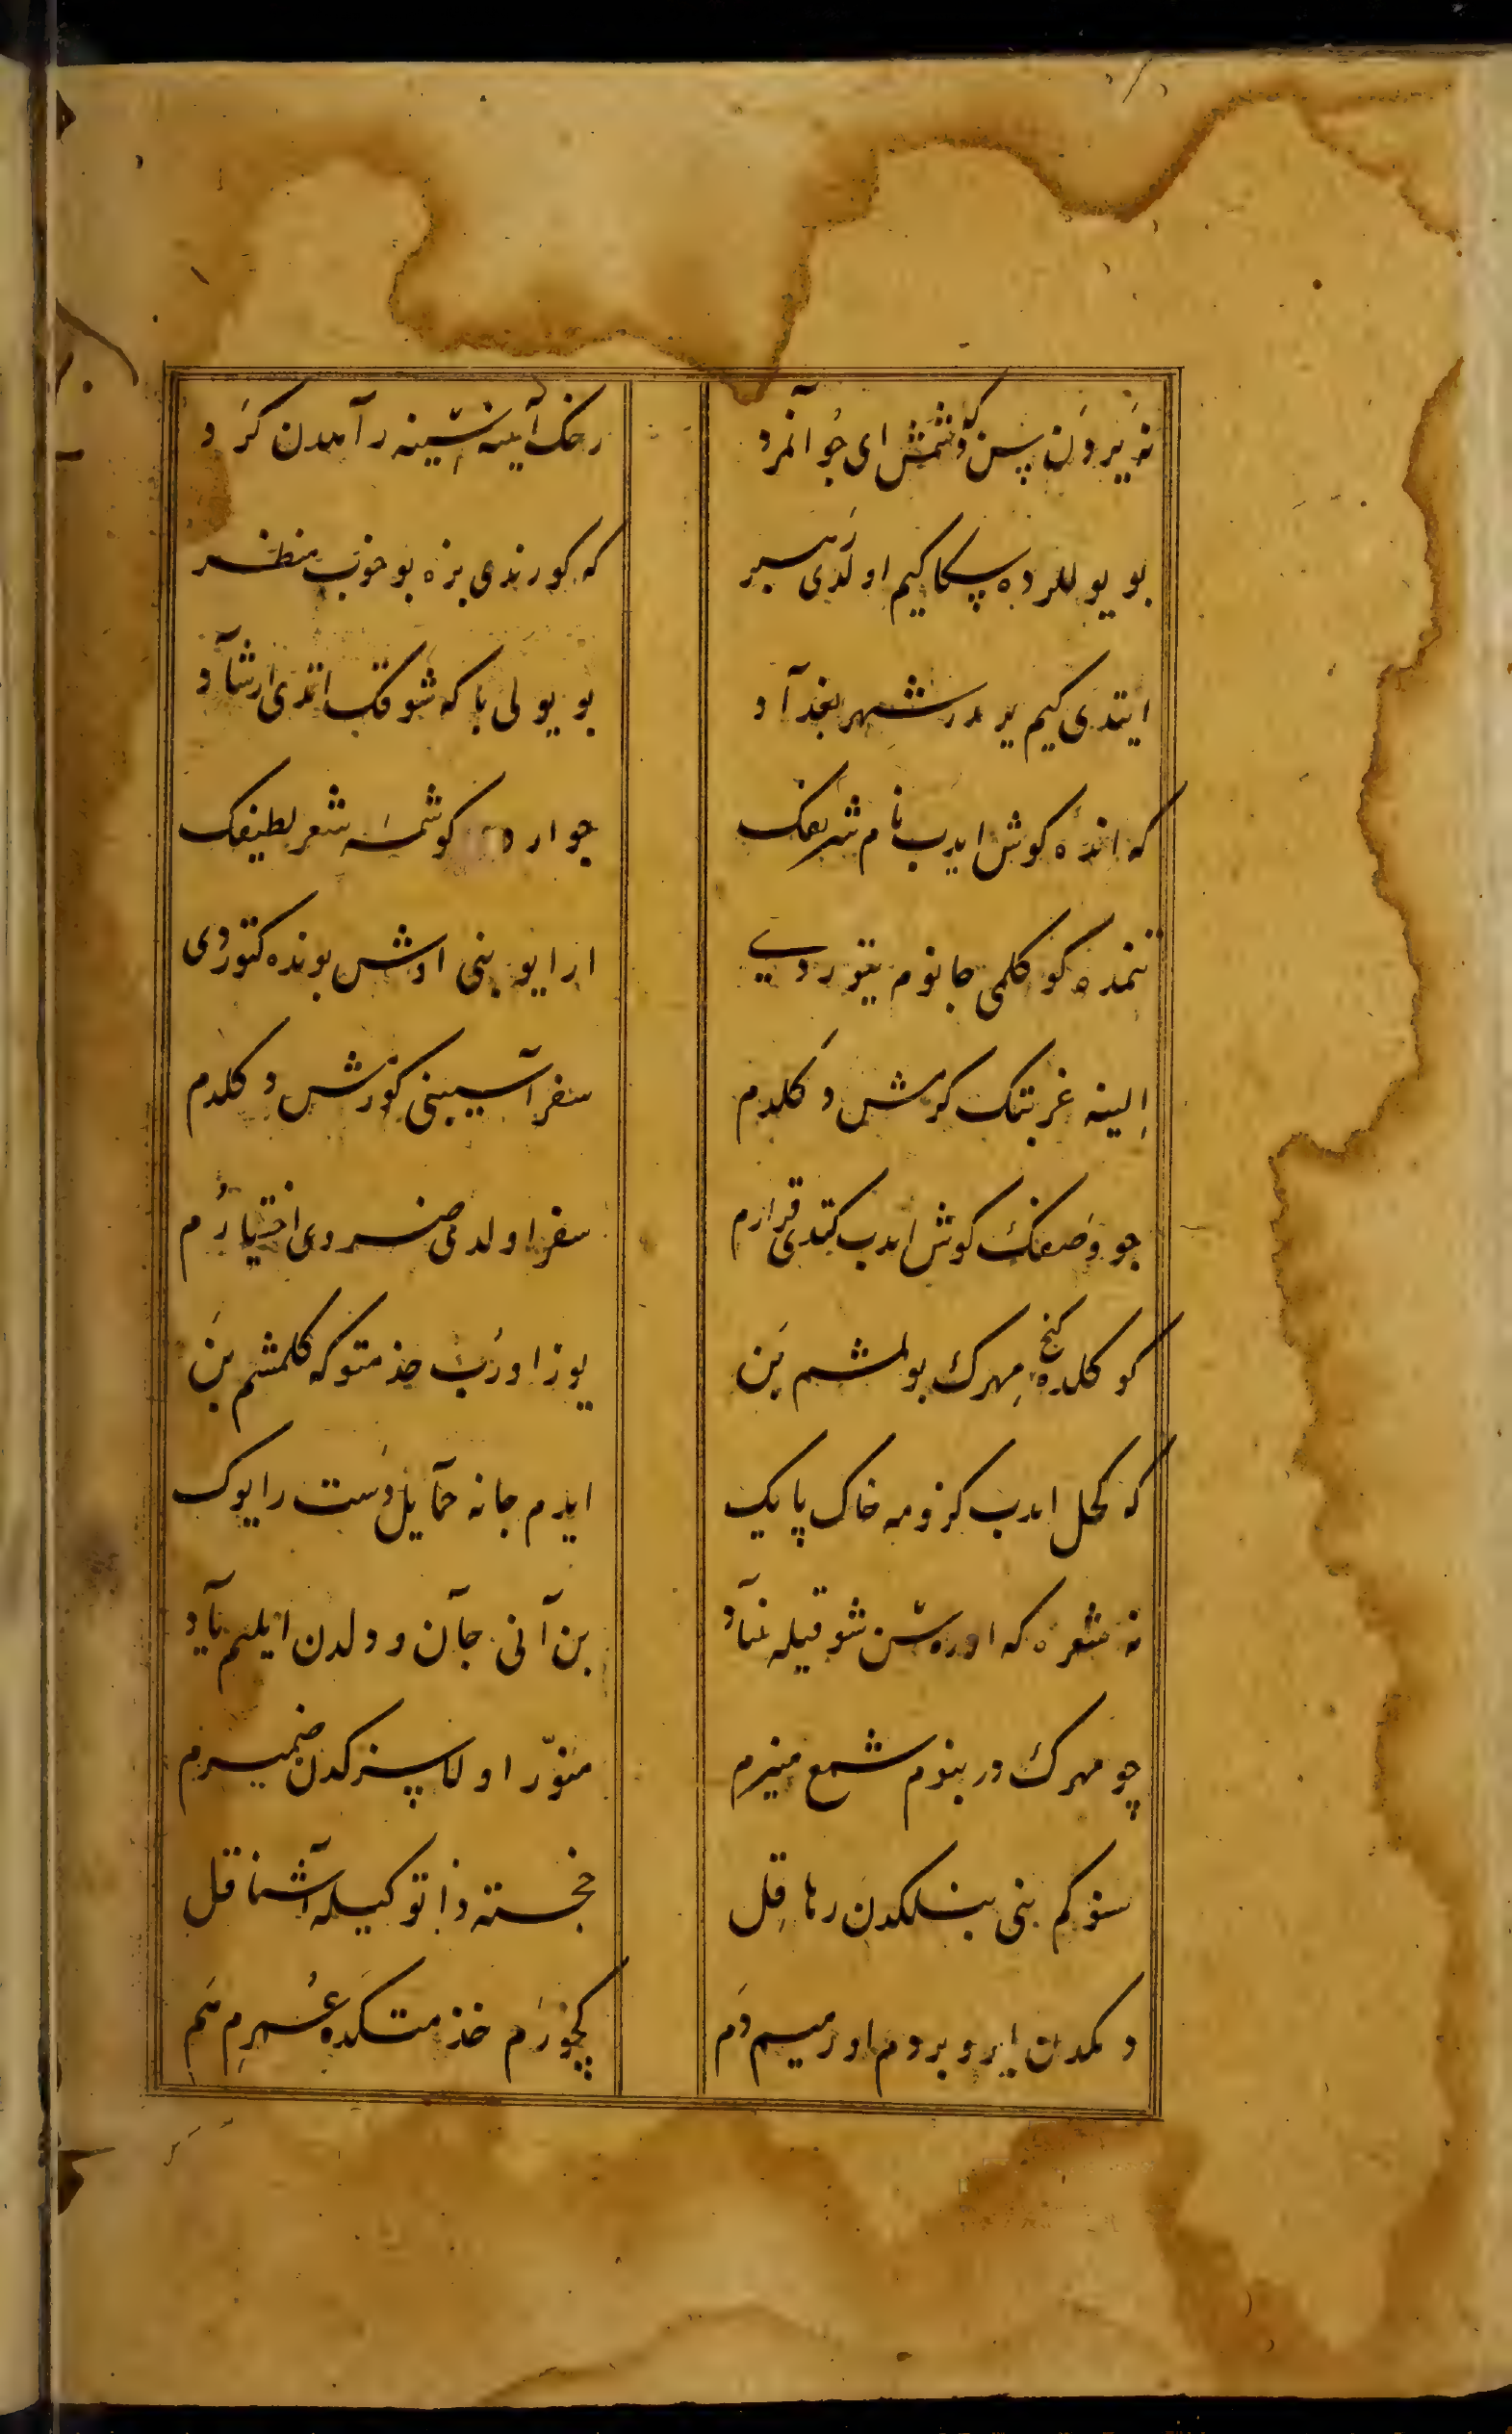 نه یردن سن کوشمش ای جوانمرد
رخک آینه‌سینه رآهدن کرد
بو یوللرده سکا کیم اولدی رهبر
که کورندی بزه بو خوب منظر
ایتدی کیم یرمدر شهر بغدآد
بو یولی باکه شوقک اتدی ارشآد
که انده کوش ایدب نام شریفک
جو ارد کوشمه شعر لطیفک
تنمده کوکلمی جانوم یتوردی
ارایو بنی اوش بونده کتوردی
الینه غربتک کرمش و کلدم
سفر آسیبنی کورمش و کلدم
جو وصفک کوش ایدب کتدی قرارم
سفر اولدی ضروری اختیارم
کوکلده کنج مهرک بولمشم بن
یوز اورب خذمتوکه کلمشم بن
که کحل ایدب کزومه خاک پایک
ایدم جانه حمآیل دست رایوک
نه شعره که اوره‌سن شوقیله بنیآد
بن آنی جآن و دلدن ایلیم یآد
چو مهرک در بنوم شمع منیرم
منور اولا سنرکدن ضمیرم
سنوکم بنی بنلکدن رها قل
خجسته ذاتوکیله آشنا قل
دمکدن ایرو بردم اورمیم دم
کچورم خذمتکده عمرم هم